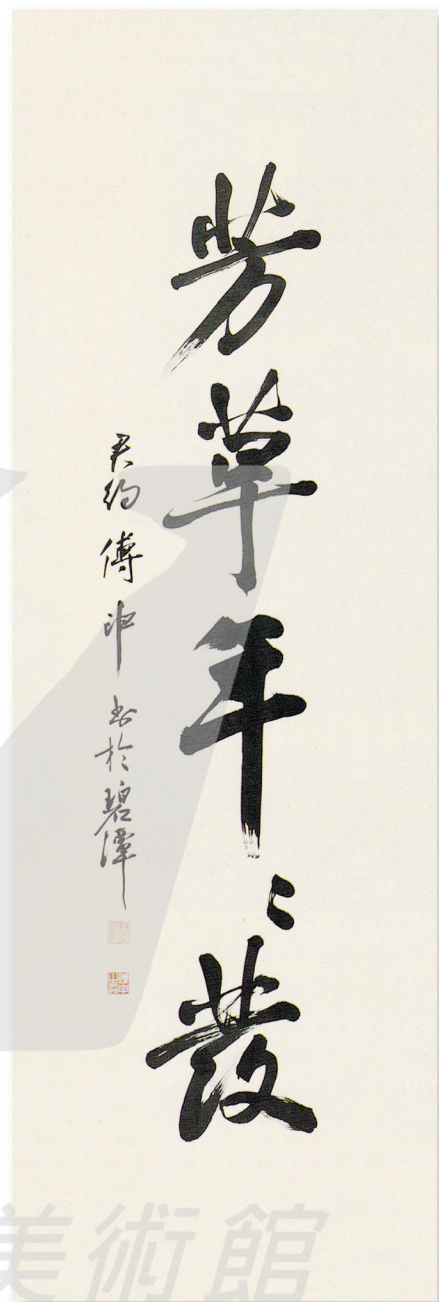 芳草年〻發
君約傅申書於碧潭
美術館